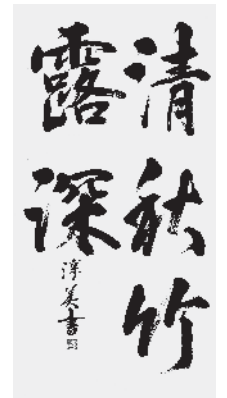 清秋竹
露深
淳美書